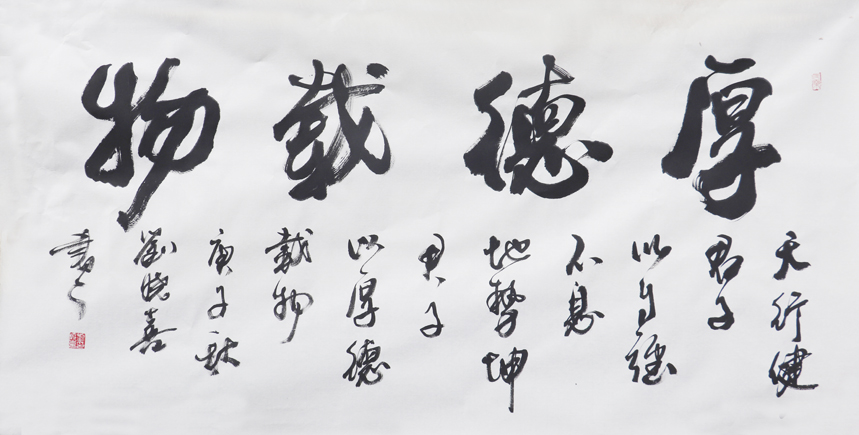 厚德載物
天行健
君子
以自強
不息
地勢坤
君子
以厚德
載物
庚子秋
劉曉喜
書